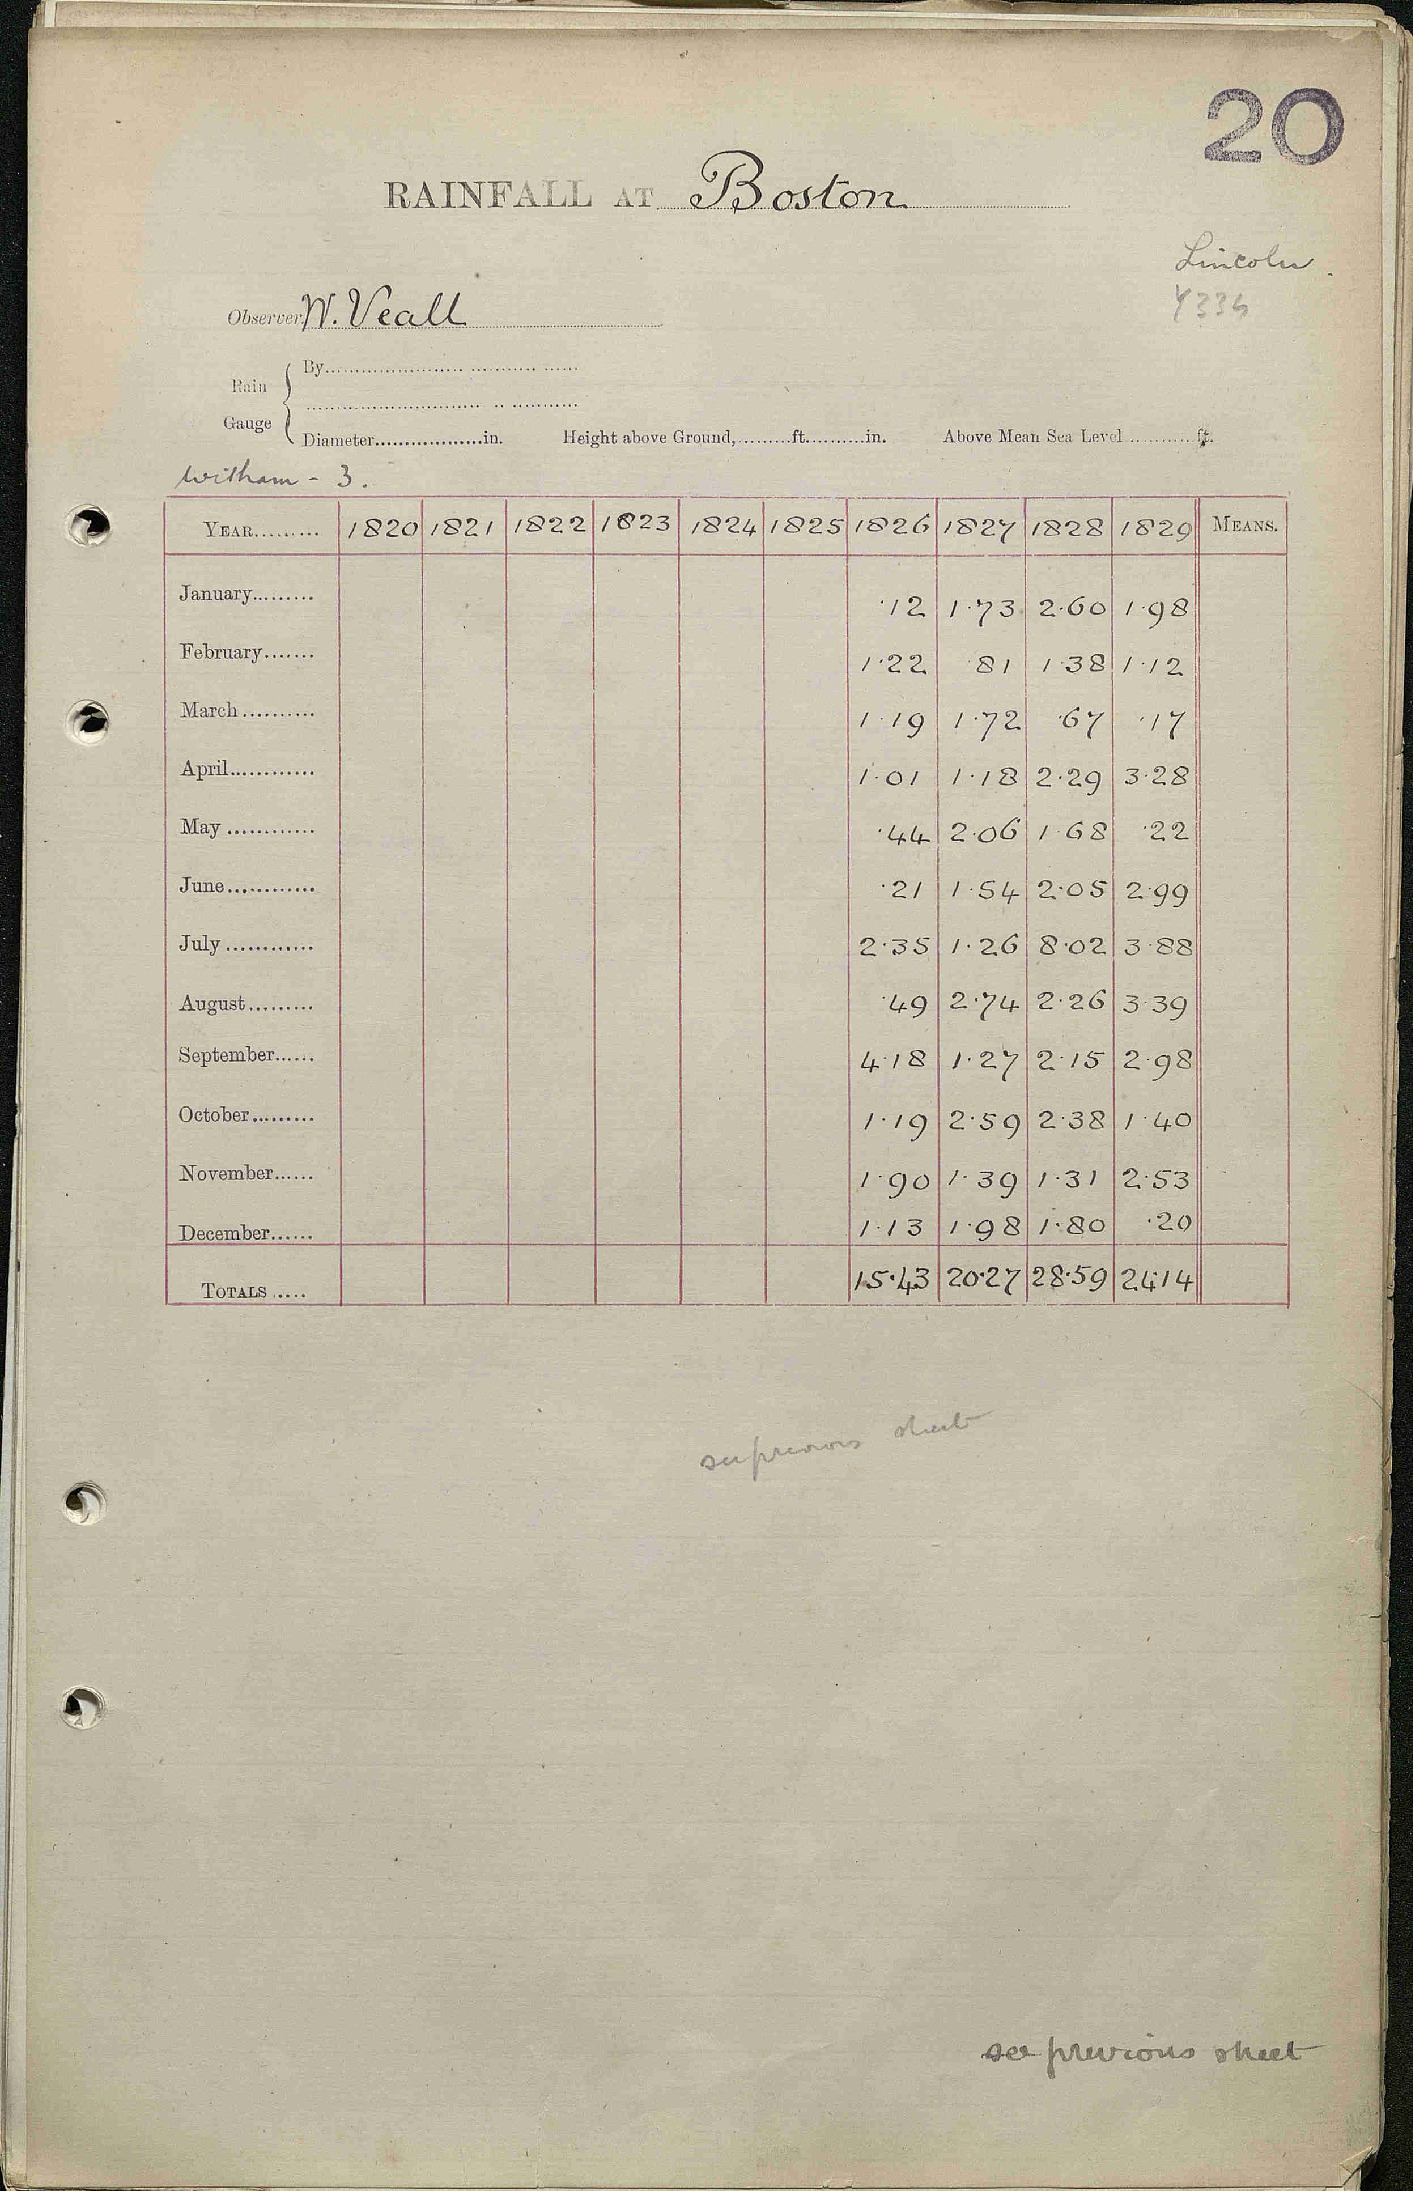 20
RAINFALL AT Boston
Lincoln.
Observer W. Veall
Y336
By
Rain
Gauge
Diameter in. Height above Ground, ft. in. Above Mean Sea Level ft.
Witham - 3.
YEAR 1820 1821 1822 1823 1824 1825 1826 1827 1828 1829 MEANS.
January ·12 1·73 2·60 1·98
February 1·22 ·81 1·38 1·12
March 1·19 1·72 ·67 ·17
April 1·01 1·18 2·29 3·28
May ·44 2·06 1·68 ·22
June ·21 1·54 2·05 2·99
July 2·35 1·26 8·02 3·88
August ·49 2·74 2·26 3·39
September 4·18 1·27 2·15 2·98
October 1·19 2·59 2·38 1·40
November 1·90 1·39 1·31 2·53
December 1·13 1·98 1·80 ·20
TOTALS 15·43 20·27 28·59 24·14
see previous sheet
see previous sheet